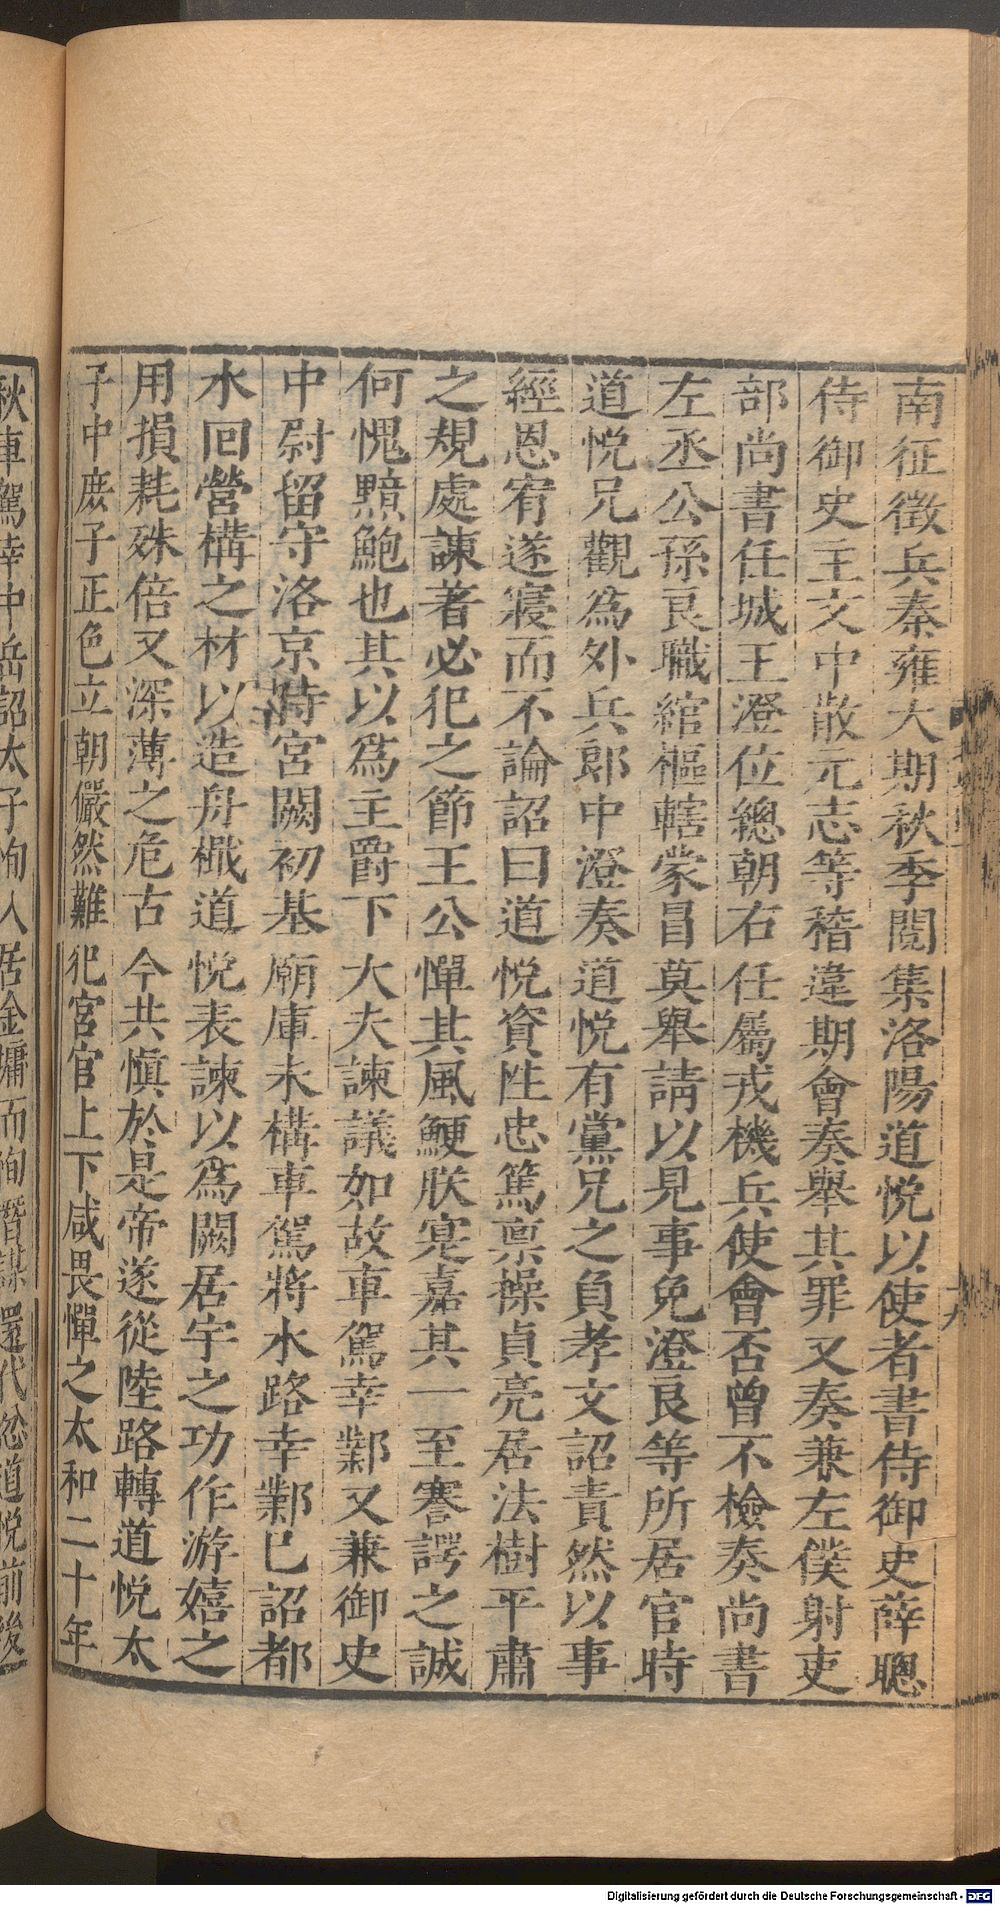 南征徵兵秦雍大期秋季閱集洛陽道悅以使者書侍御史薛聰
侍御史主文中散元志等稽違期會奏舉其罪又奏兼左僕射吏
部尚書任城王澄位總朝右任屬戎機兵使會否曾不檢奏尚書
左丞公孫良職綰樞轄蒙冒莫舉請以見事免澄良等所居官時
道悅兄觀為外兵郎中澄奏道悅有黨兄之負孝文詔責然以事
經恩宥遂寢而不論詔曰道悅資性忠篤禀操貞亮居法樹平肅
之規處諫著必犯之節王公憚其風鯁朕寔嘉其一至謇諤之誠
何愧黯鮑也其以爲主爵下大夫諫議如故車駕幸鄴又兼御史
中尉留守洛京時宮闕初基廟庫未構車駕將水路幸鄴巳詔都
水回營構之材以造舟檝道悅表諫以爲闕居宇之功作游嬉之
用損耗殊倍又深薄之危古今共慎於是帝遂從陸路轉道悅太
子中庶子正色立朝儼然難犯宮官上下咸畏憚之太和二十年
秋車駕幸中岳詔太子恂入居金墉而恂潛謀還代忿道悅前後
十九
Digitalisierung gefördert durch die Deutsche Forschungsgemeinschaft - DFG